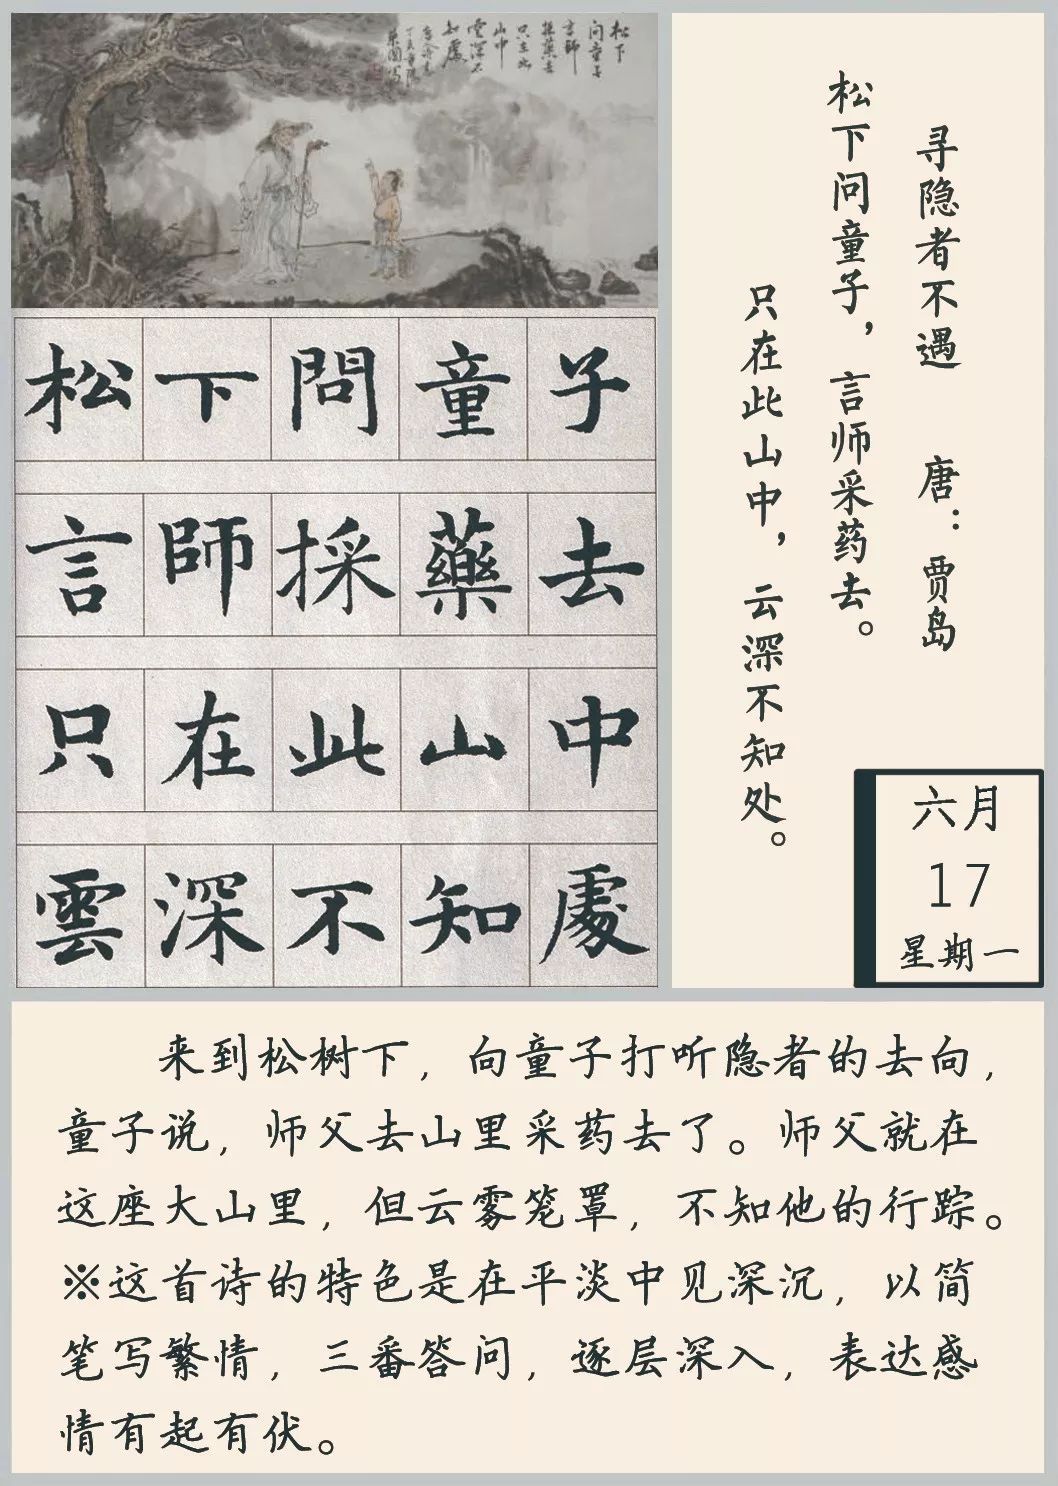 松下
问童子
言師
採藥去
只在此
山中
雲深不
知處
松下問童子
言師採藥去
只在此山中
雲深不知處
寻隐者不遇 唐：贾岛
松下问童子，言师采药去。
只在此山中，云深不知处。
六月
17
星期一
来到松树下，向童子打听隐者的去向，
童子说，师父去山里采药去了。师父就在
这座大山里，但云雾笼罩，不知他的行踪。
※这首诗的特色是在平淡中见深沉，以简
笔写繁情，三番答问，逐层深入，表达感
情有起有伏。